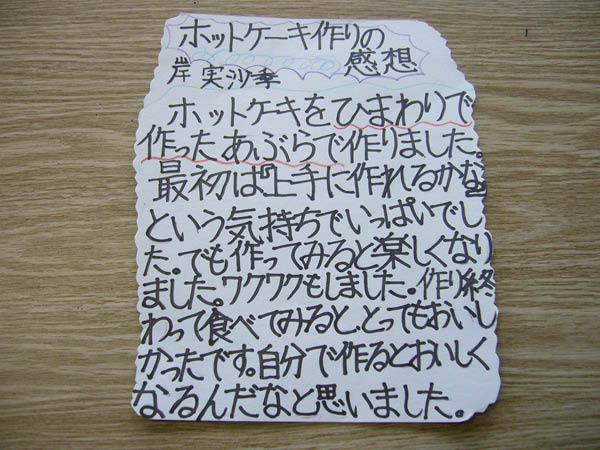 ホットケーキ作りの
感想
岸 実沙季
ホットケーキをひまわりで
作ったあぶらで作りました。
最初は『上手に作れるかな』
という気持ちでいっぱいでし
た。でも作ってみると楽しくなり
ました。ワクワクもしました。作り終
わって食べてみると、とってもおいし
かったです。自分で作るとおいしく
なるんだなと思いました。